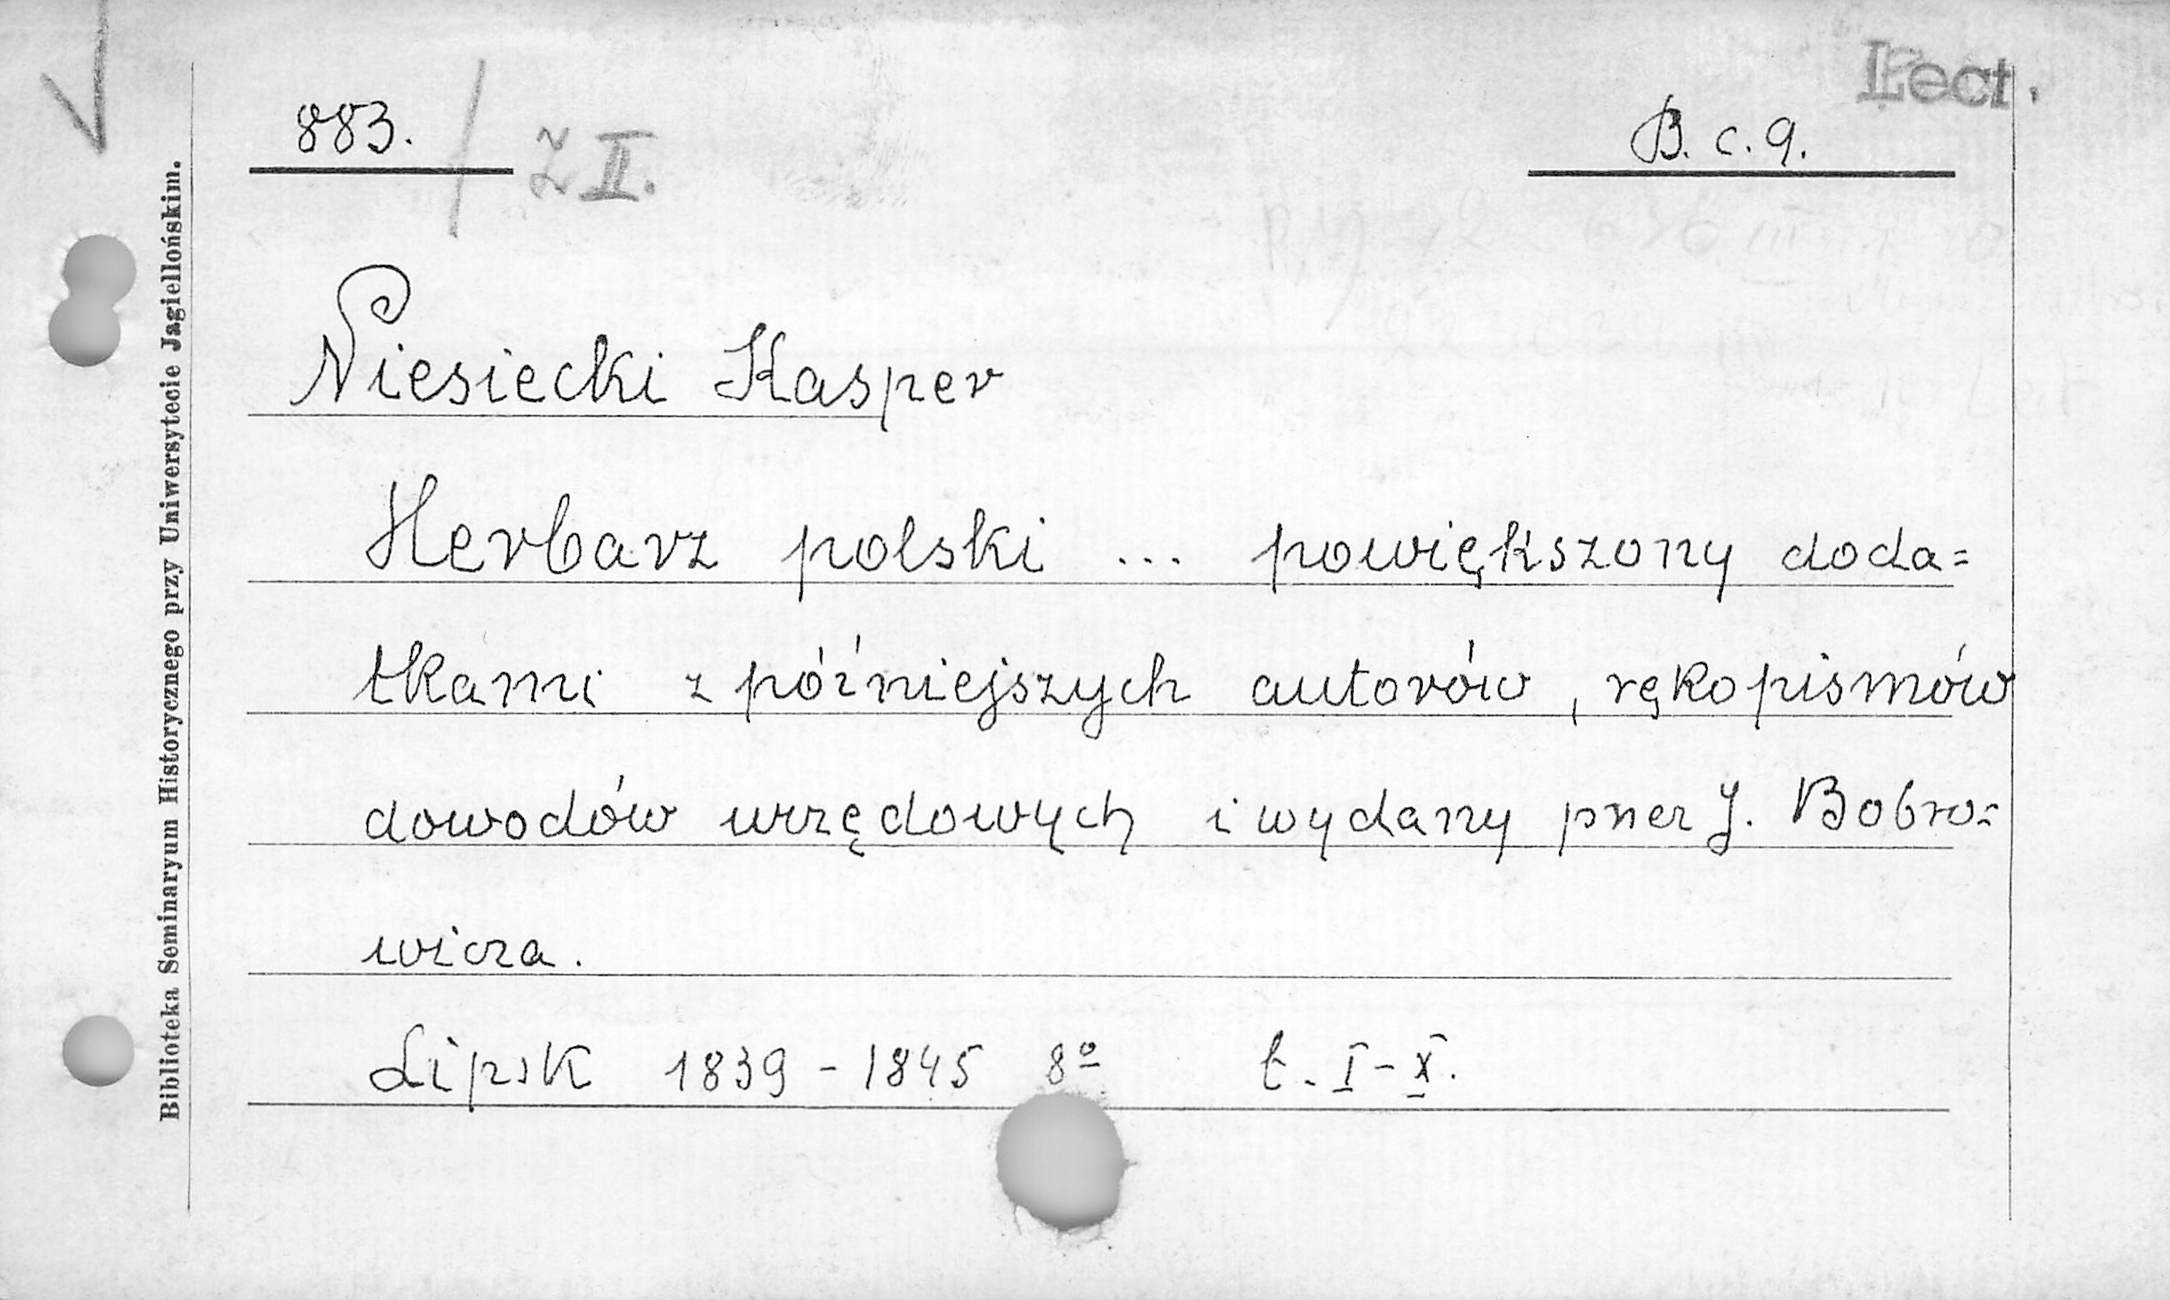 Lect.
883. / Ż II.
B. c. 9.
Niesiecki Kasper
Herbarz polski ... powiększony doda=
tkami z późniejszych autorów, rękopismów
dowodów urzędowych i wydany przez J. Bobro=
wicza.
Lipsk 1839-1845 8º t. I-X.
Biblioteka Seminaryum Historycznego przy Uniwersytecie Jagiellońskim.